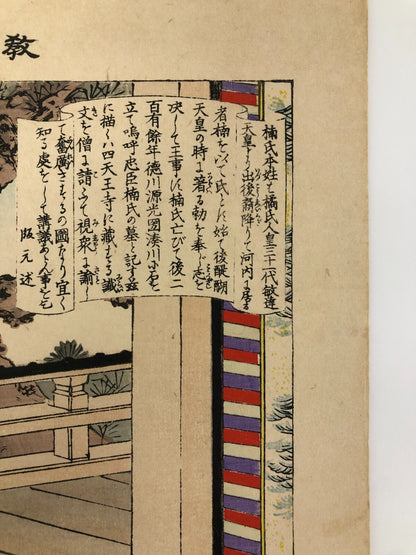 教
楠氏本姓は橘氏人皇三十一代敏達
天皇より出後翦降りて河内に居る
者楠を以て氏とす始て後醍醐
天皇の時に著る勅を奉じ志を
决して王事に楠氏亡びて後二
百有餘年徳川源光國湊川に石を
立て嗚呼忠臣楠氏の墓と記す茲
に描くハ四天王寺に藏する識
文を僧に請ふて視衆に諭し
て奮厲さするの圖なり宜く
知る處をして講議あらん事を乞
版元述